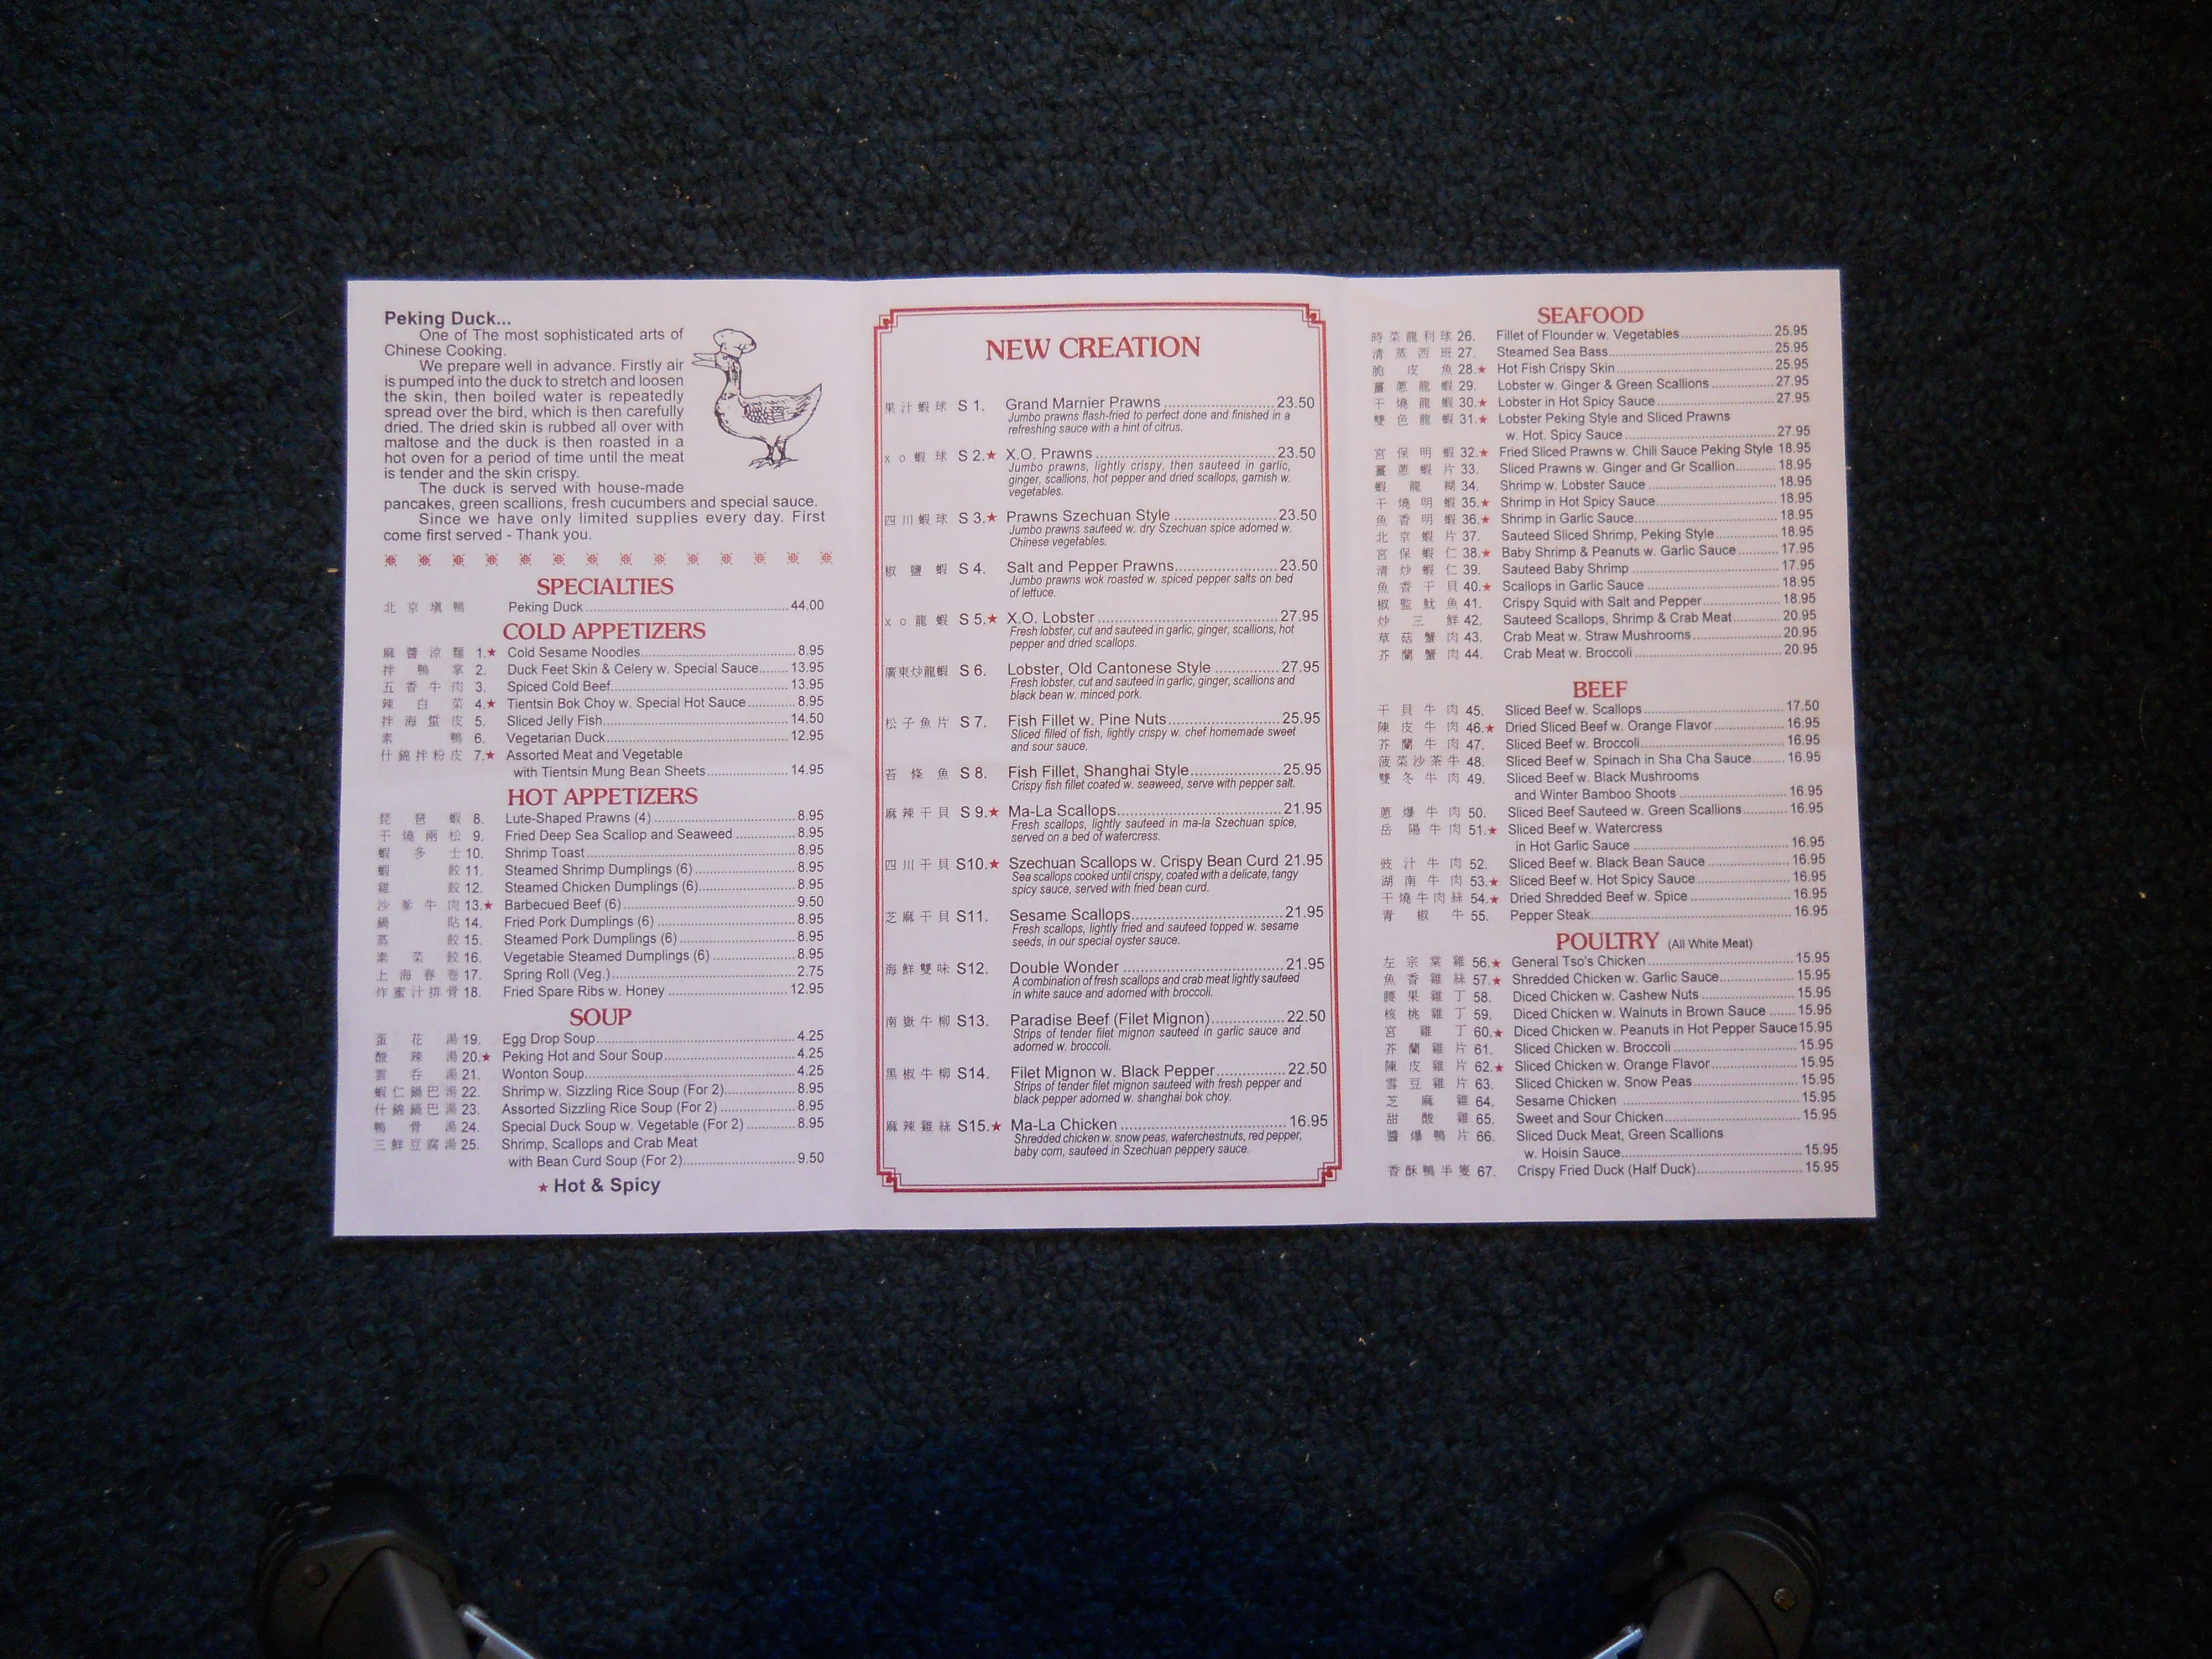 Peking Duck...
One of The most sophisticated arts of
Chinese Cooking.
We prepare well in advance. Firstly air
is pumped into the duck to stretch and loosen
the skin, then boiled water is repeatedly
spread over the bird, which is then carefully
dried. The dried skin is rubbed all over with
maltose and the duck is then roasted in a
hot oven for a period of time until the meat
is tender and the skin crispy.
The duck is served with house-made
pancakes, green scallions, fresh cucumbers and special sauce.
Since we have only limited supplies every day. First
come first served - Thank you.
SPECIALTIES
北京塡鴨 Peking Duck 44.00
COLD APPETIZERS
麻醬涼麵 1.★ Cold Sesame Noodles 8.95
拌鴨掌 2. Duck Feet Skin & Celery w. Special Sauce 13.95
五香牛肉 3. Spiced Cold Beef 13.95
辣白菜 4.★ Tientsin Bok Choy w. Special Hot Sauce 8.95
拌海蜇皮 5. Sliced Jelly Fish 14.50
素鴨 6. Vegetarian Duck 12.95
什錦拌粉皮 7.★ Assorted Meat and Vegetable
with Tientsin Mung Bean Sheets 14.95
HOT APPETIZERS
琵琶蝦 8. Lute-Shaped Prawns (4) 8.95
干燒兩松 9. Fried Deep Sea Scallop and Seaweed 8.95
蝦多士 10. Shrimp Toast 8.95
蝦餃 11. Steamed Shrimp Dumplings (6) 8.95
雞餃 12. Steamed Chicken Dumplings (6) 8.95
沙爹牛肉 13.★ Barbecued Beef (6) 9.50
鍋貼 14. Fried Pork Dumplings (6) 8.95
蒸餃 15. Steamed Pork Dumplings (6) 8.95
素菜餃 16. Vegetable Steamed Dumplings (6) 8.95
上海春卷 17. Spring Roll (Veg.) 2.75
炸蜜汁排骨 18. Fried Spare Ribs w. Honey 12.95
SOUP
蛋花湯 19. Egg Drop Soup 4.25
酸辣湯 20.★ Peking Hot and Sour Soup 4.25
雲吞湯 21. Wonton Soup 4.25
蝦仁鍋巴湯 22. Shrimp w. Sizzling Rice Soup (For 2) 8.95
什錦鍋巴湯 23. Assorted Sizzling Rice Soup (For 2) 8.95
鴨骨湯 24. Special Duck Soup w. Vegetable (For 2) 8.95
三鮮豆腐湯 25. Shrimp, Scallops and Crab Meat
with Bean Curd Soup (For 2) 9.50
★ Hot & Spicy
NEW CREATION
果汁蝦球 S 1. Grand Marnier Prawns 23.50
Jumbo prawns flash-fried to perfect done and finished in a
refreshing sauce with a hint of citrus.
xo蝦球 S 2.★ X.O. Prawns 23.50
Jumbo prawns, lightly crispy, then sauteed in garlic,
ginger, scallions, hot pepper and dried scallops, garnish w.
vegetables.
四川蝦球 S 3.★ Prawns Szechuan Style 23.50
Jumbo prawns sauteed w. dry Szechuan spice adorned w.
Chinese vegetables.
椒鹽蝦 S 4. Salt and Pepper Prawns 23.50
Jumbo prawns wok roasted w. spiced pepper salts on bed
of lettuce.
xo龍蝦 S 5.★ X.O. Lobster 27.95
Fresh lobster, cut and sauteed in garlic, ginger, scallions, hot
pepper and dried scallops.
廣東炒龍蝦 S 6. Lobster, Old Cantonese Style 27.95
Fresh lobster, cut and sauteed in garlic, ginger, scallions and
black bean w. minced pork.
松子魚片 S 7. Fish Fillet w. Pine Nuts 25.95
Sliced filled of fish, lightly crispy w. chef homemade sweet
and sour sauce.
苔條魚 S 8. Fish Fillet, Shanghai Style 25.95
Crispy fish fillet coated w. seaweed, serve with pepper salt.
麻辣干貝 S 9.★ Ma-La Scallops 21.95
Fresh scallops, lightly sauteed in ma-la Szechuan spice,
served on a bed of watercress.
四川干貝 S10.★ Szechuan Scallops w. Crispy Bean Curd 21.95
Sea scallops cooked until crispy, coated with a delicate, tangy
spicy sauce, served with fried bean curd.
芝麻干貝 S11. Sesame Scallops 21.95
Fresh scallops, lightly fried and sauteed topped w. sesame
seeds, in our special oyster sauce.
海鮮雙味 S12. Double Wonder 21.95
A combination of fresh scallops and crab meat lightly sauteed
in white sauce and adorned with broccoli.
南嶽牛柳 S13. Paradise Beef (Filet Mignon) 22.50
Strips of tender filet mignon sauteed in garlic sauce and
adorned w. broccoli.
黑椒牛柳 S14. Filet Mignon w. Black Pepper 22.50
Strips of tender filet mignon sauteed with fresh pepper and
black pepper adorned w. shanghai bok choy.
麻辣雞絲 S15.★ Ma-La Chicken 16.95
Shredded chicken w. snow peas, waterchestnuts, red pepper,
baby corn, sauteed in Szechuan peppery sauce.
SEAFOOD
時菜龍利球 26. Fillet of Flounder w. Vegetables 25.95
清蒸西班 27. Steamed Sea Bass 25.95
脆皮魚 28.★ Hot Fish Crispy Skin 25.95
薑蔥龍蝦 29. Lobster w. Ginger & Green Scallions 27.95
干燒龍蝦 30.★ Lobster in Hot Spicy Sauce 27.95
雙色龍蝦 31.★ Lobster Peking Style and Sliced Prawns
w. Hot. Spicy Sauce 27.95
宮保明蝦 32.★ Fried Sliced Prawns w. Chili Sauce Peking Style 18.95
薑蔥蝦片 33. Sliced Prawns w. Ginger and Gr Scallion 18.95
蝦龍糊 34. Shrimp w. Lobster Sauce 18.95
干燒明蝦 35.★ Shrimp in Hot Spicy Sauce 18.95
魚香明蝦 36.★ Shrimp in Garlic Sauce 18.95
北京蝦片 37. Sauteed Sliced Shrimp, Peking Style 18.95
宮保蝦仁 38.★ Baby Shrimp & Peanuts w. Garlic Sauce 17.95
清炒蝦仁 39. Sauteed Baby Shrimp 17.95
魚香干貝 40.★ Scallops in Garlic Sauce 18.95
椒監魷魚 41. Crispy Squid with Salt and Pepper 18.95
炒三鮮 42. Sauteed Scallops, Shrimp & Crab Meat 20.95
草菇蟹肉 43. Crab Meat w. Straw Mushrooms 20.95
芥蘭蟹肉 44. Crab Meat w. Broccoli 20.95
BEEF
干貝牛肉 45. Sliced Beef w. Scallops 17.50
陳皮牛肉 46.★ Dried Sliced Beef w. Orange Flavor 16.95
芥蘭牛肉 47. Sliced Beef w. Broccoli 16.95
菠菜沙茶牛 48. Sliced Beef w. Spinach in Sha Cha Sauce 16.95
雙冬牛肉 49. Sliced Beef w. Black Mushrooms
and Winter Bamboo Shoots 16.95
蔥爆牛肉 50. Sliced Beef Sauteed w. Green Scallions 16.95
岳陽牛肉 51.★ Sliced Beef w. Watercress
in Hot Garlic Sauce 16.95
豉汁牛肉 52. Sliced Beef w. Black Bean Sauce 16.95
湖南牛肉 53.★ Sliced Beef w. Hot Spicy Sauce 16.95
干燒牛肉絲 54.★ Dried Shredded Beef w. Spice 16.95
青椒牛 55. Pepper Steak 16.95
POULTRY (All White Meat)
左宗棠雞 56.★ General Tso's Chicken 15.95
魚香雞絲 57.★ Shredded Chicken w. Garlic Sauce 15.95
腰果雞丁 58. Diced Chicken w. Cashew Nuts 15.95
核桃雞丁 59. Diced Chicken w. Walnuts in Brown Sauce 15.95
宮雞丁 60.★ Diced Chicken w. Peanuts in Hot Pepper Sauce 15.95
芥蘭雞片 61. Sliced Chicken w. Broccoli 15.95
陳皮雞片 62.★ Sliced Chicken w. Orange Flavor 15.95
雪豆雞片 63. Sliced Chicken w. Snow Peas 15.95
芝麻雞 64. Sesame Chicken 15.95
甜酸雞 65. Sweet and Sour Chicken 15.95
醬爆鴨片 66. Sliced Duck Meat, Green Scallions
w. Hoisin Sauce 15.95
香酥鴨半隻 67. Crispy Fried Duck (Half Duck) 15.95